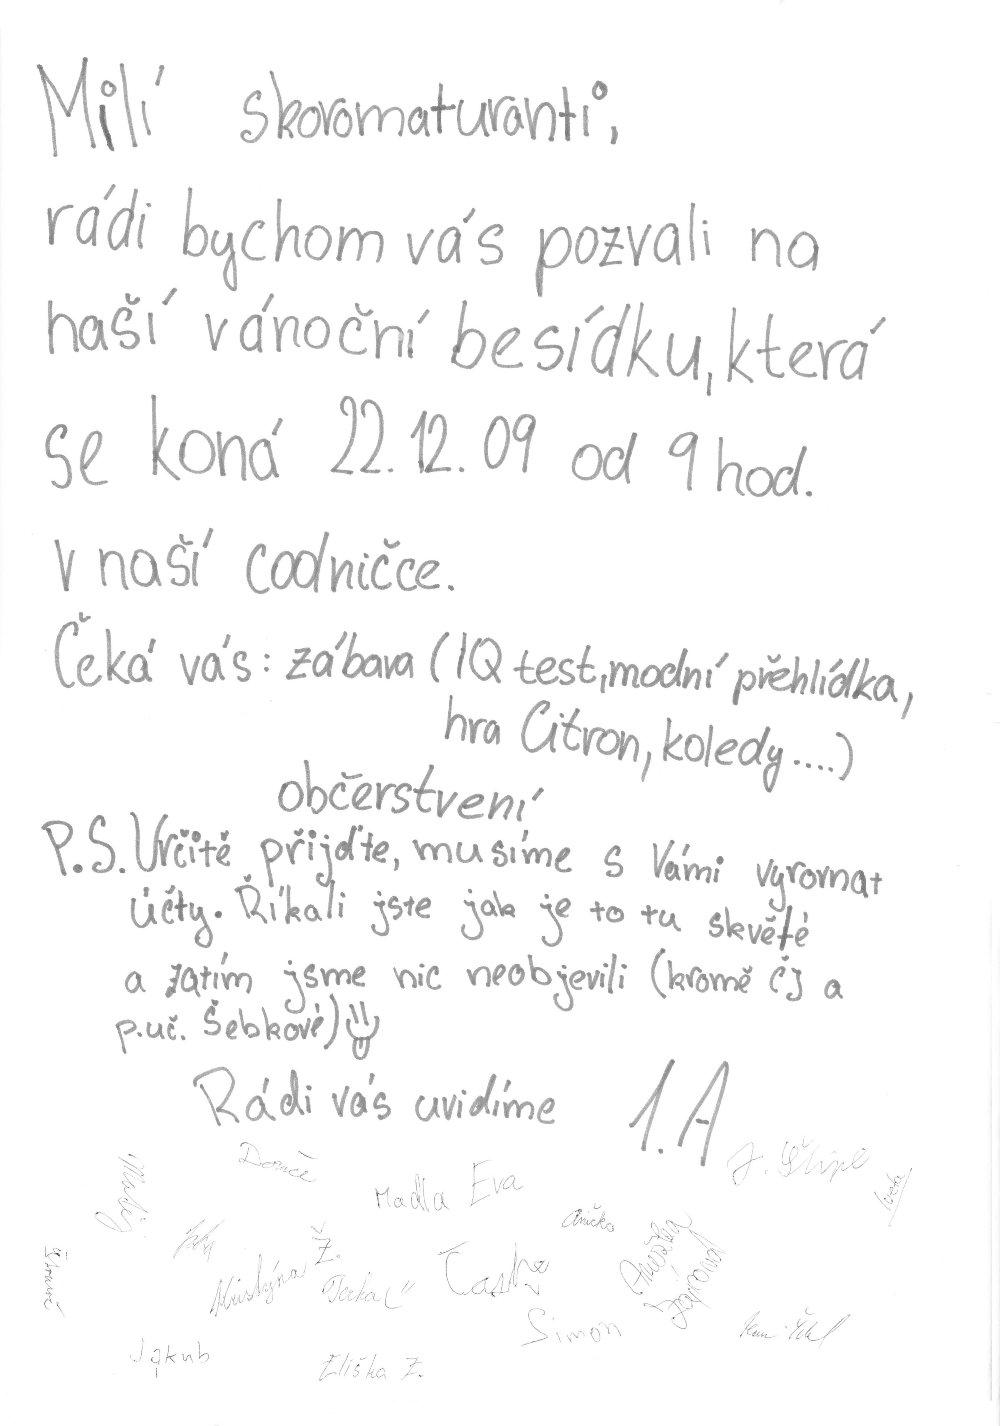 Milí skoromaturanti,
rádi bychom vás pozvali na
naší vánoční besídku, která
se koná 22.12.09 od 9 hod.
v naší codničce.
Čeká vás: zábava (IQ test, modní přehlídka,
hra Citron, koledy....)
občerstvení
P.S. Určitě přijďte, musíme s Vámi vyrovnat
účty. Říkali jste jak je to tu skvělé
a zatím jsme nic neobjevili (kromě ČJ a
p.uč. Šebkové)
Rádi vás uvidíme 1.A
Madla Eva
Anička
Kristýna Ž.
Simon
Jakub
Eliška Z.